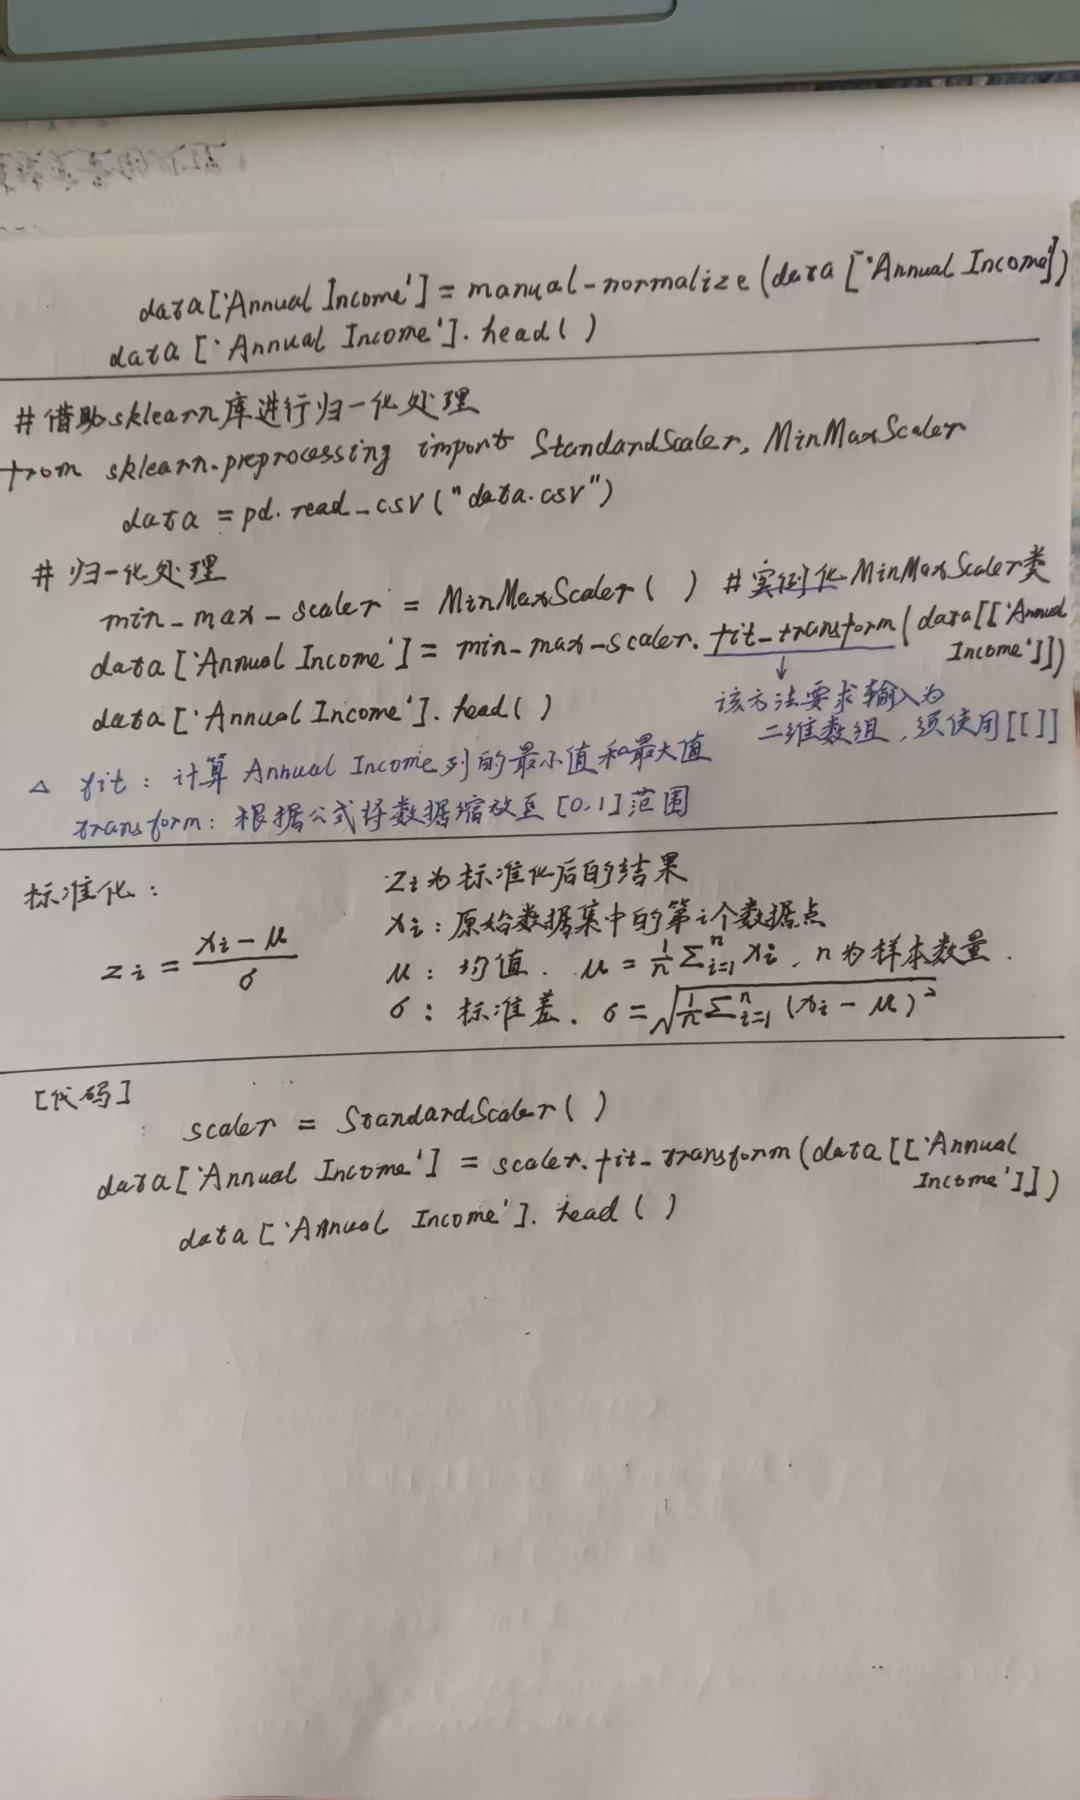 data['Annual Income'] = manual-normalize(data['Annual Income'])
data['Annual Income'].head()
# 借助sklearn库进行归一化处理
from sklearn.preprocessing import StandardScaler, MinMaxScaler
data = pd.read_csv("data.csv")
# 归一化处理
min_max_scaler = MinMaxScaler() # 实例化MinMaxScaler类
data['Annual Income'] = min_max_scaler.fit_transform(data[['Annual
Income']])
data['Annual Income'].head()
该方法要求输入为
二维数组,须使用[[]]
△ fit: 计算 Annual Income列的最小值和最大值
transform: 根据公式将数据缩放至[0,1]范围
标准化:
zi = (xi - μ) / σ
zi为标准化后的结果
xi: 原始数据集中的第i个数据点
μ: 均值. μ = 1/n Σⁿᵢ₌₁ xi, n为样本数量.
σ: 标准差. σ = √(1/n Σⁿᵢ₌₁ (xi - μ)²)
[代码]
scaler = StandardScaler()
data['Annual Income'] = scaler.fit_transform(data[['Annual
Income']])
data['Annual Income'].head()